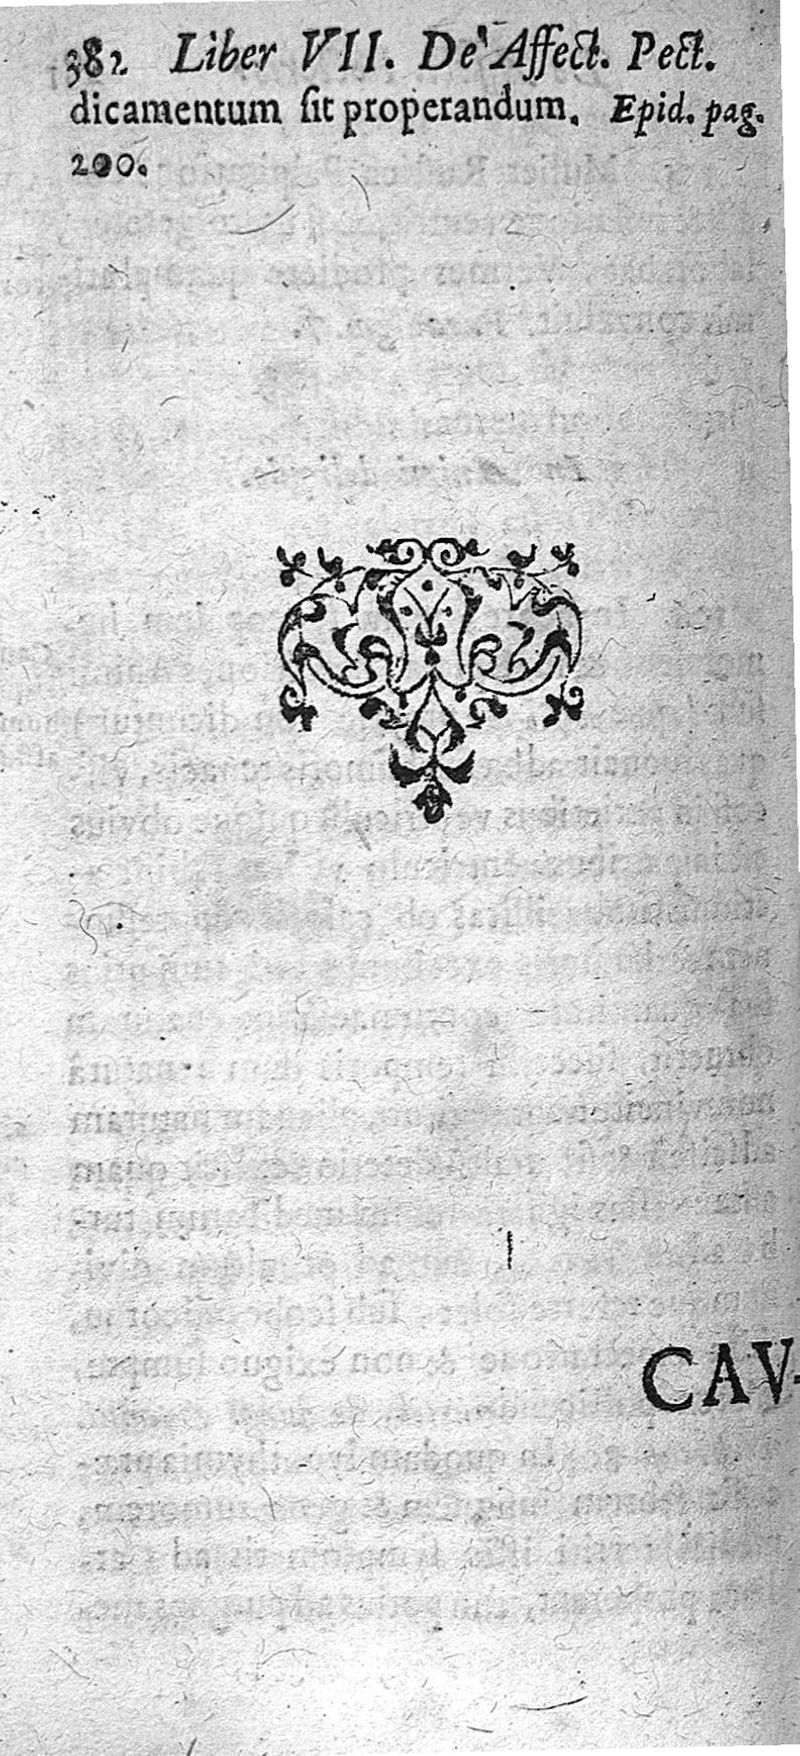 382 Liber VII. De Affect. Pect.
dicamentum ſit properandum. Epid. pag.
200.
CAV-